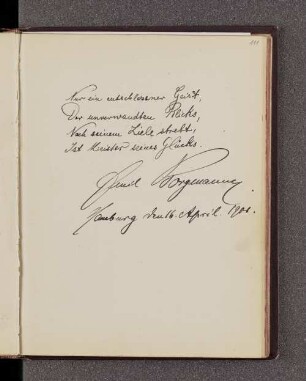 Nur ein entschlossener Geist,
Der unverwandten Blicks,
Nach seinem Ziele strebt,
Ist Meister seines Glücks.
Emil Borgmann
Hamburg den 16. April 1901.